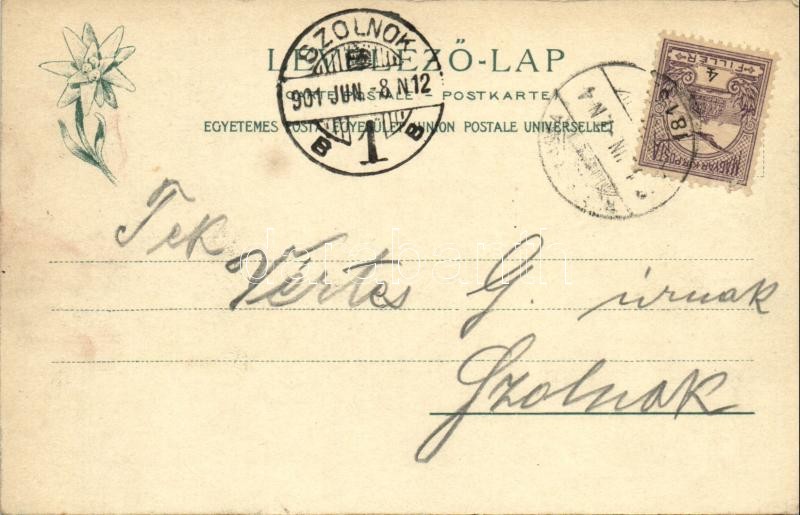 SZOLNOK
901 JUN. -8. N12
B 1 B
LEVELEZŐ-LAP
CARTE POSTALE - POSTKARTE
EGYETEMES POSTA EGYESÜLET UNION POSTALE UNIVERSELLE
4
FILLÉR
MAGYAR KIR. POSTA
Tek
Vértes G. úrnak
Szolnok
darabanth